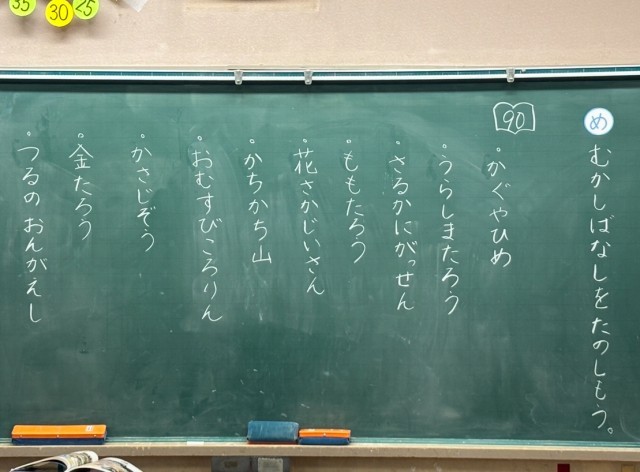 め むかしばなしをたのしもう。
90
・かぐやひめ
・うらしまたろう
・さるかにがっせん
・ももたろう
・花さかじいさん
・かちかち山
・おむすびころりん
・かさじぞう
・金たろう
・つるのおんがえし
35
30
25